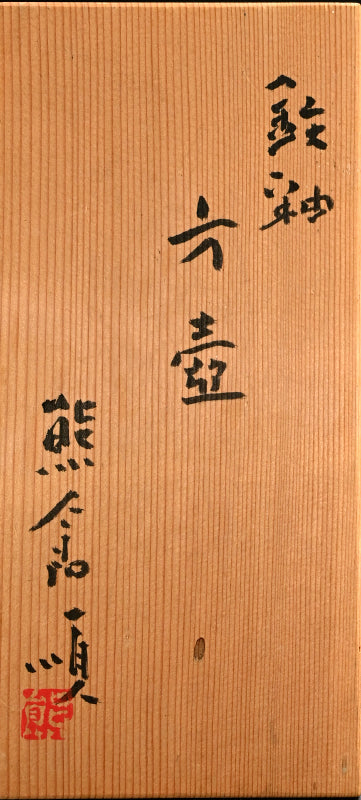 鉄釉
方壺
熊倉順